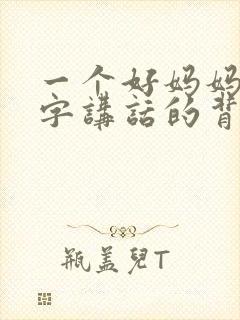 一个好妈妈
字講話的背
瓶盖兒T